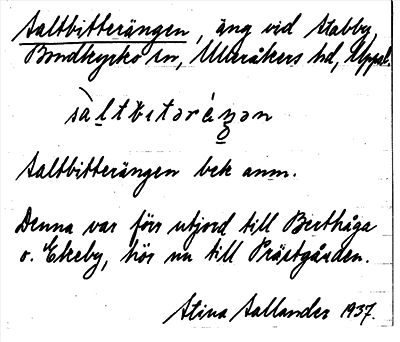 Saltbitterängen, äng vid Stabby,
Bondkyrko sn, Ulleråkers hd, Uppl.
Saltbitterängen bek anm.
Denna var förr utjord till Berthåga
o. Ekeby, hör nu till Prästgården.
Stina Sallander 1937.